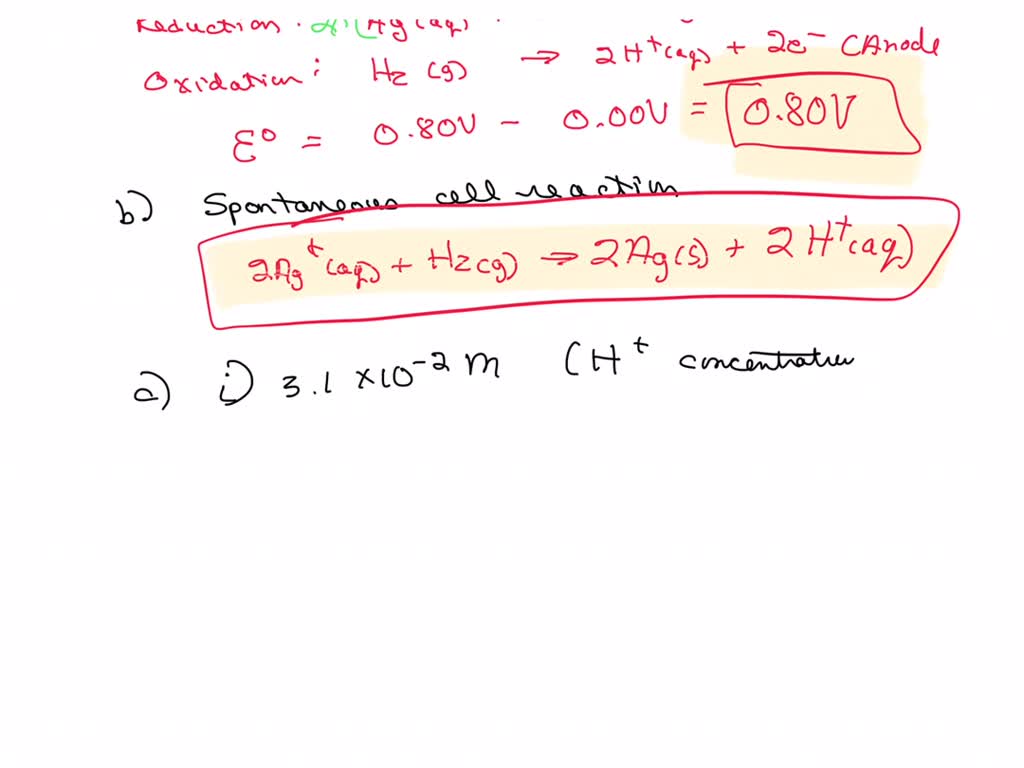 Reduction . Ag (aq)
Oxidation : H2 (g) → 2H+(aq) + 2e- (Anode
E° = 0.80V - 0.00V = 0.80V
b) Spontaneous cell reaction
2Ag+(aq) + H2(g) → 2Ag(s) + 2H+(aq)
i) 3.1 ×10-2 M (H+ concentration